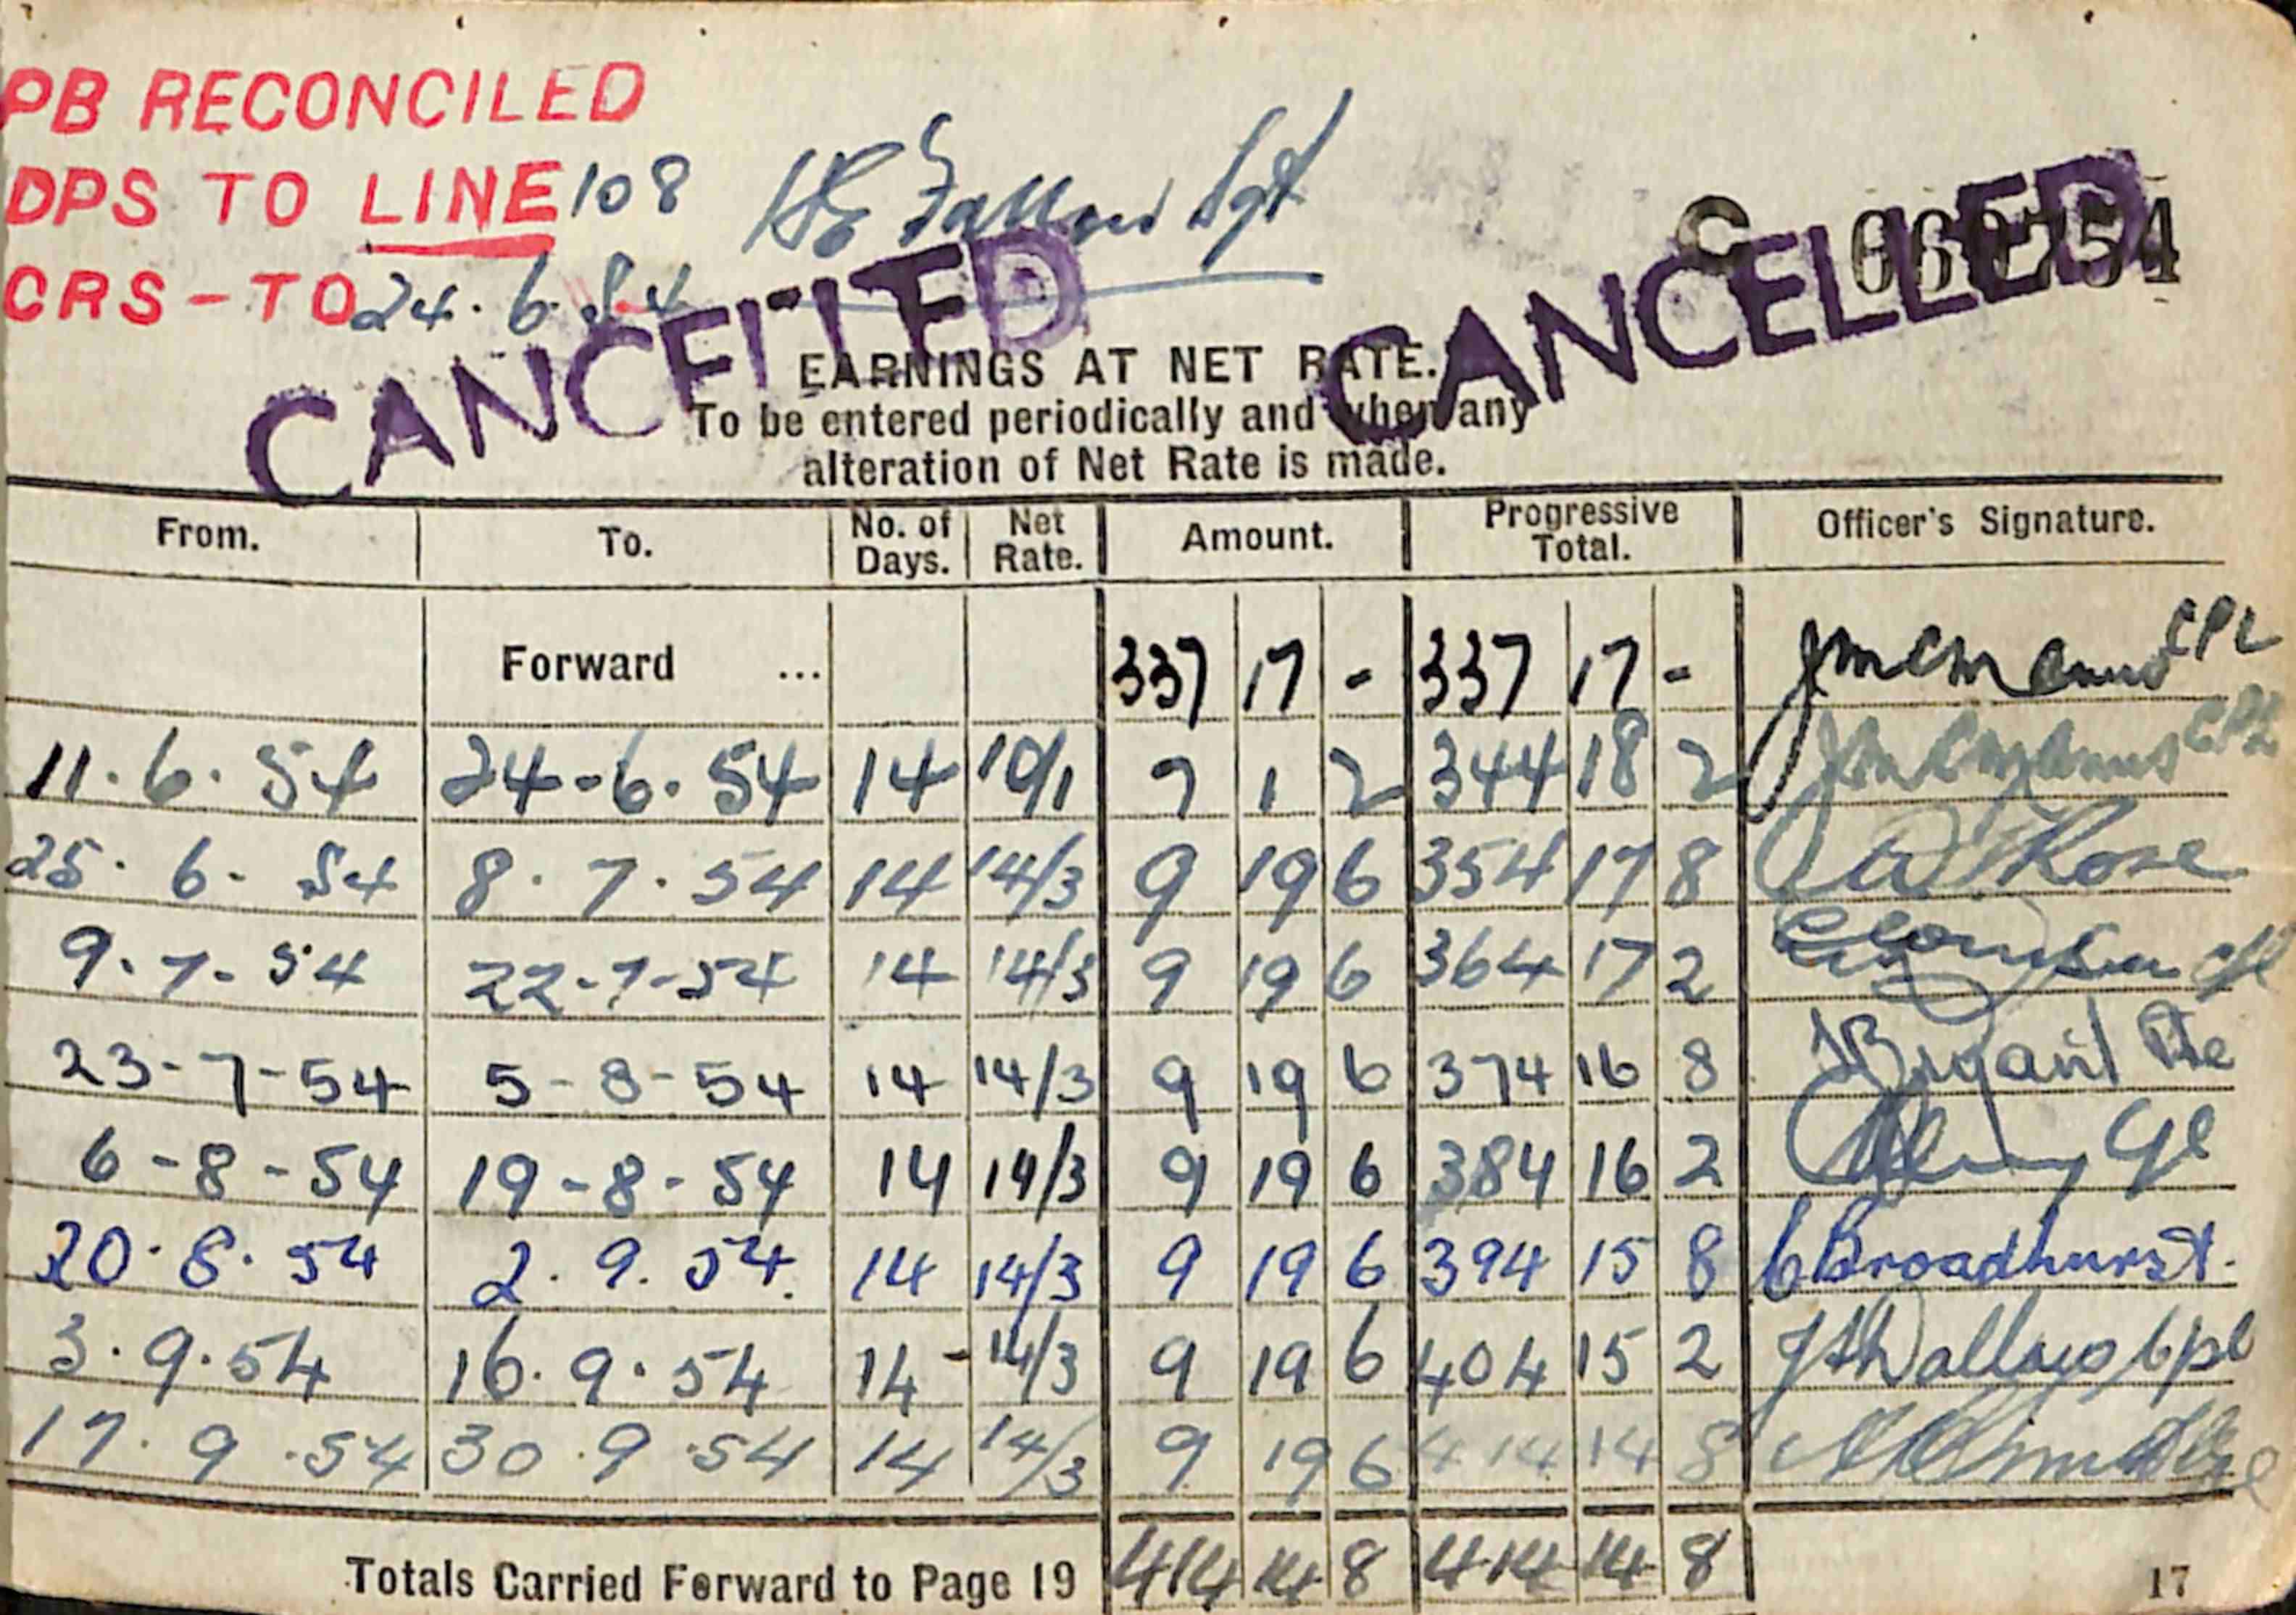 PB RECONCILED
DPS TO LINE 108
CRS-TO 24.6.54
Sgt
C
CANCELLED
CANCELLED
EARNINGS AT NET RATE.
To be entered periodically and when any
alteration of Net Rate is made.
From. To. No. of Days. Net Rate. Amount. Progressive Total. Officer's Signature.
Forward ... 337 17 - 337 17 - CPL
11.6.54 24-6.54 14 10/1 7 1 2 344 18 2 CPL
25.6-54 8.7.54 14 14/3 9 19 6 354 17 8 Rose
9.7-54 22-7-54 14 14/3 9 19 6 364 17 2 Cpl
23-7-54 5-8-54 14 14/3 9 19 6 374 16 8 Bryant Pte
6-8-54 19-8-54 14 14/3 9 19 6 384 16 2 Cpl
20.8.54 2.9.54. 14 14/3 9 19 6 394 15 8 C Broadhurst.
3.9.54 16.9.54 14 - 14/3 9 19 6 404 15 2 Cpl
17.9.54 30.9.54 14 14/3 9 19 6 414 14 8
Totals Carried Forward to Page 19 414 14 8 414 14 8
17